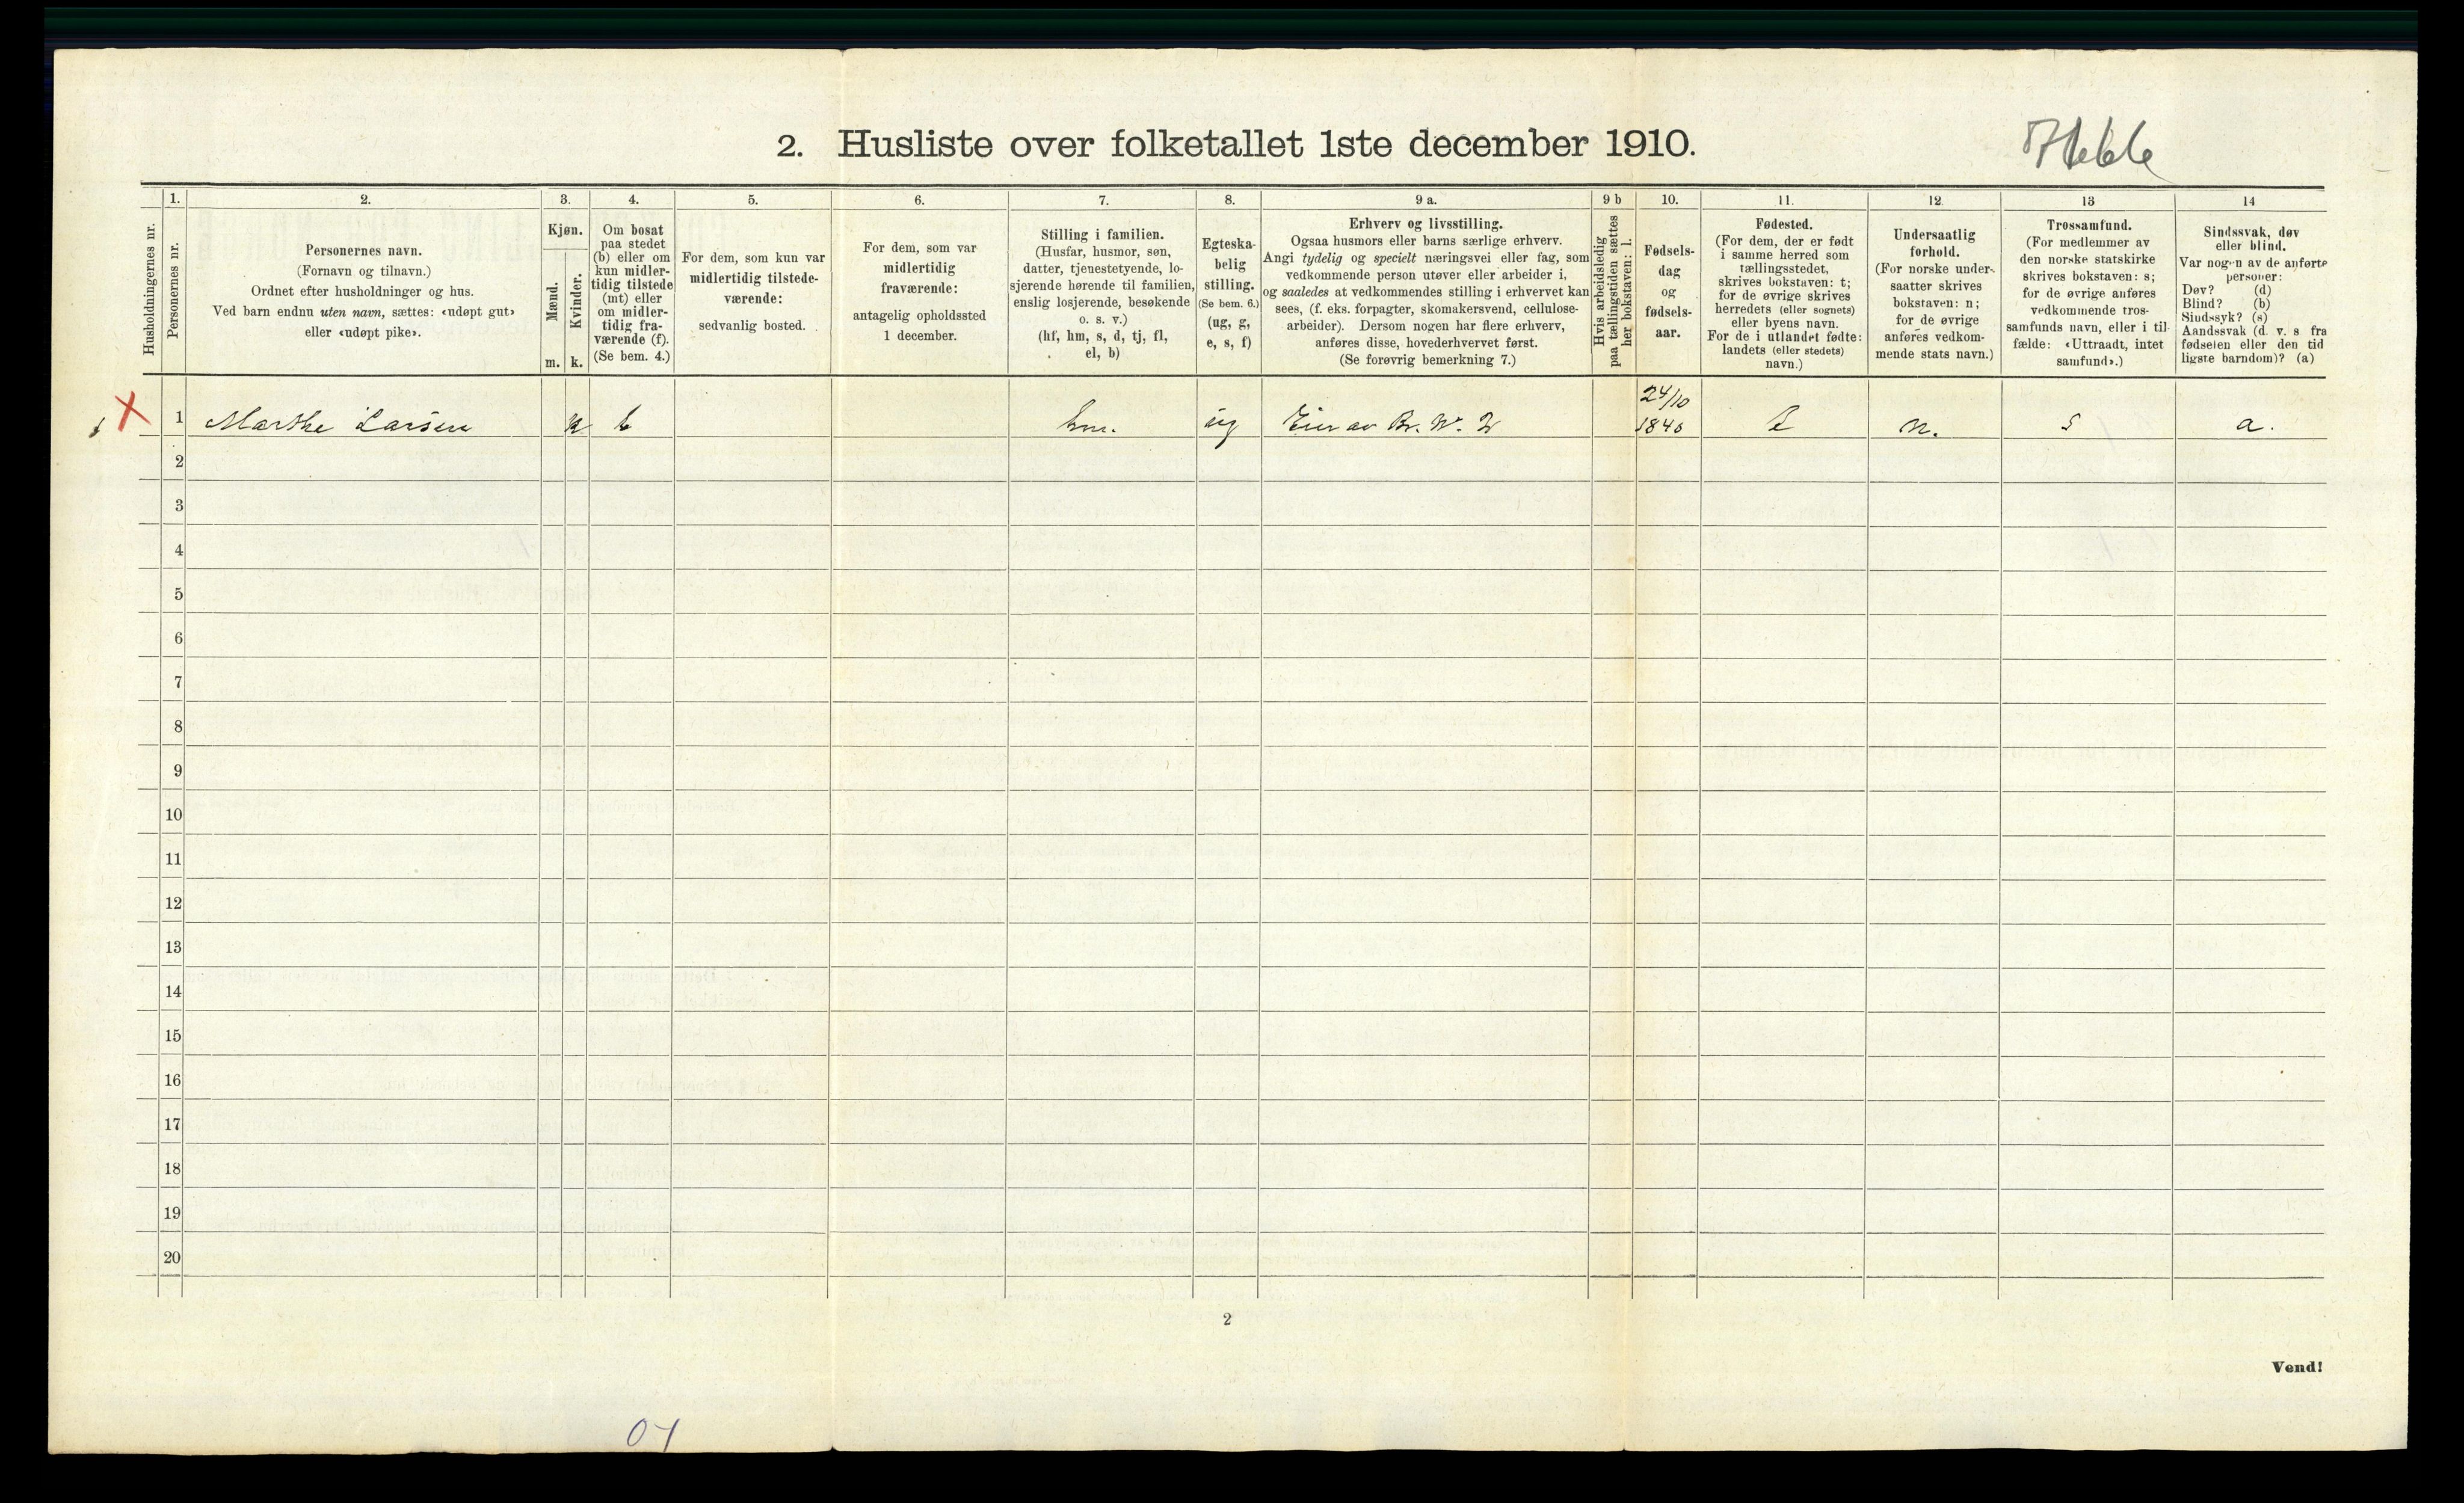 2. Husliste over folketallet 1ste december 1910.
Husholdningernes nr.
1.
Personernes nr.
2.
Personernes navn.
(Fornavn og tilnavn.)
Ordnet efter husholdninger og hus.
Ved barn endnu uten navn, sættes: «udøpt gut»
eller «udøpt pike».
3.
Kjøn.
Mænd.
Kvinder.
m. k.
4.
Om bosat
paa stedet
(b) eller om
kun midler-
tidig tilstede
(mt) eller
om midler-
tidig fra-
værende (f).
(Se bem. 4.)
5.
For dem, som kun var
midlertidig tilstede-
værende:
sedvanlig bosted.
6.
For dem, som var
midlertidig
fraværende:
antagelig opholdssted
1 december.
7.
Stilling i familien.
(Husfar, husmor, søn,
datter, tjenestetyende, lo-
sjerende hørende til familien,
enslig losjerende, besøkende
o. s. v.)
(hf, hm, s, d, tj, fl,
el, b)
8.
Egteska-
belig
stilling.
(Se bem. 6.)
(ug, g,
e, s, f)
9 a.
Erhverv og livsstilling.
Ogsaa husmors eller barns særlige erhverv.
Angi tydelig og specielt næringsvei eller fag, som
vedkommende person utøver eller arbeider i,
og saaledes at vedkommendes stilling i erhvervet kan
sees, (f. eks. forpagter, skomakersvend, cellulose-
arbeider). Dersom nogen har flere erhverv,
anføres disse, hovederhvervet først.
(Se forøvrig bemerkning 7.)
9 b
Hvis arbeidsledig
paa tællingstiden sættes
her bokstaven: l.
10.
Fødsels-
dag
og
fødsels-
aar.
11.
Fødested.
(For dem, der er født
i samme herred som
tællingsstedet,
skrives bokstaven: t;
for de øvrige skrives
herredets (eller sognets)
eller byens navn.
For de i utlandet fødte:
landets (eller stedets)
navn.)
12.
Undersaatlig
forhold.
(For norske under-
saatter skrives
bokstaven: n;
for de øvrige
anføres vedkom-
mende stats navn.)
13
Trossamfund.
(For medlemmer av
den norske statskirke
skrives bokstaven: s;
for de øvrige anføres
vedkommende tros-
samfunds navn, eller i til-
fælde: «Uttraadt, intet
samfund».)
14
Sindssvak, døv
eller blind.
Var nogen av de anførte
personer:
Døv? (d)
Blind? (b)
Sindssyk? (s)
Aandssvak (d. v. s. fra
fødselen eller den tid-
ligste barndom)? (a)
1 Marthe Larsen k b hm. ug Eier av Br. N. 24/10 1840 t n. s a.
2
3
4
5
6
7
8
9
10
11
12
13
14
15
16
17
18
19
20
2
Vend!
07